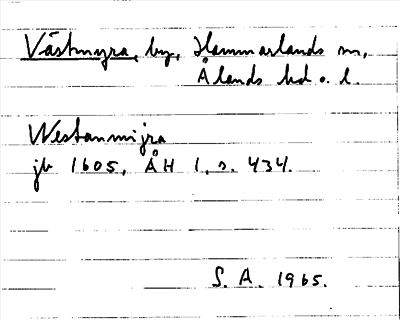 Västmyra, by, Hammarlands sn,
Ålands hd o. l.
Westanmijra
jb 1605, ÅH 1, s. 434.
S. A. 1965.